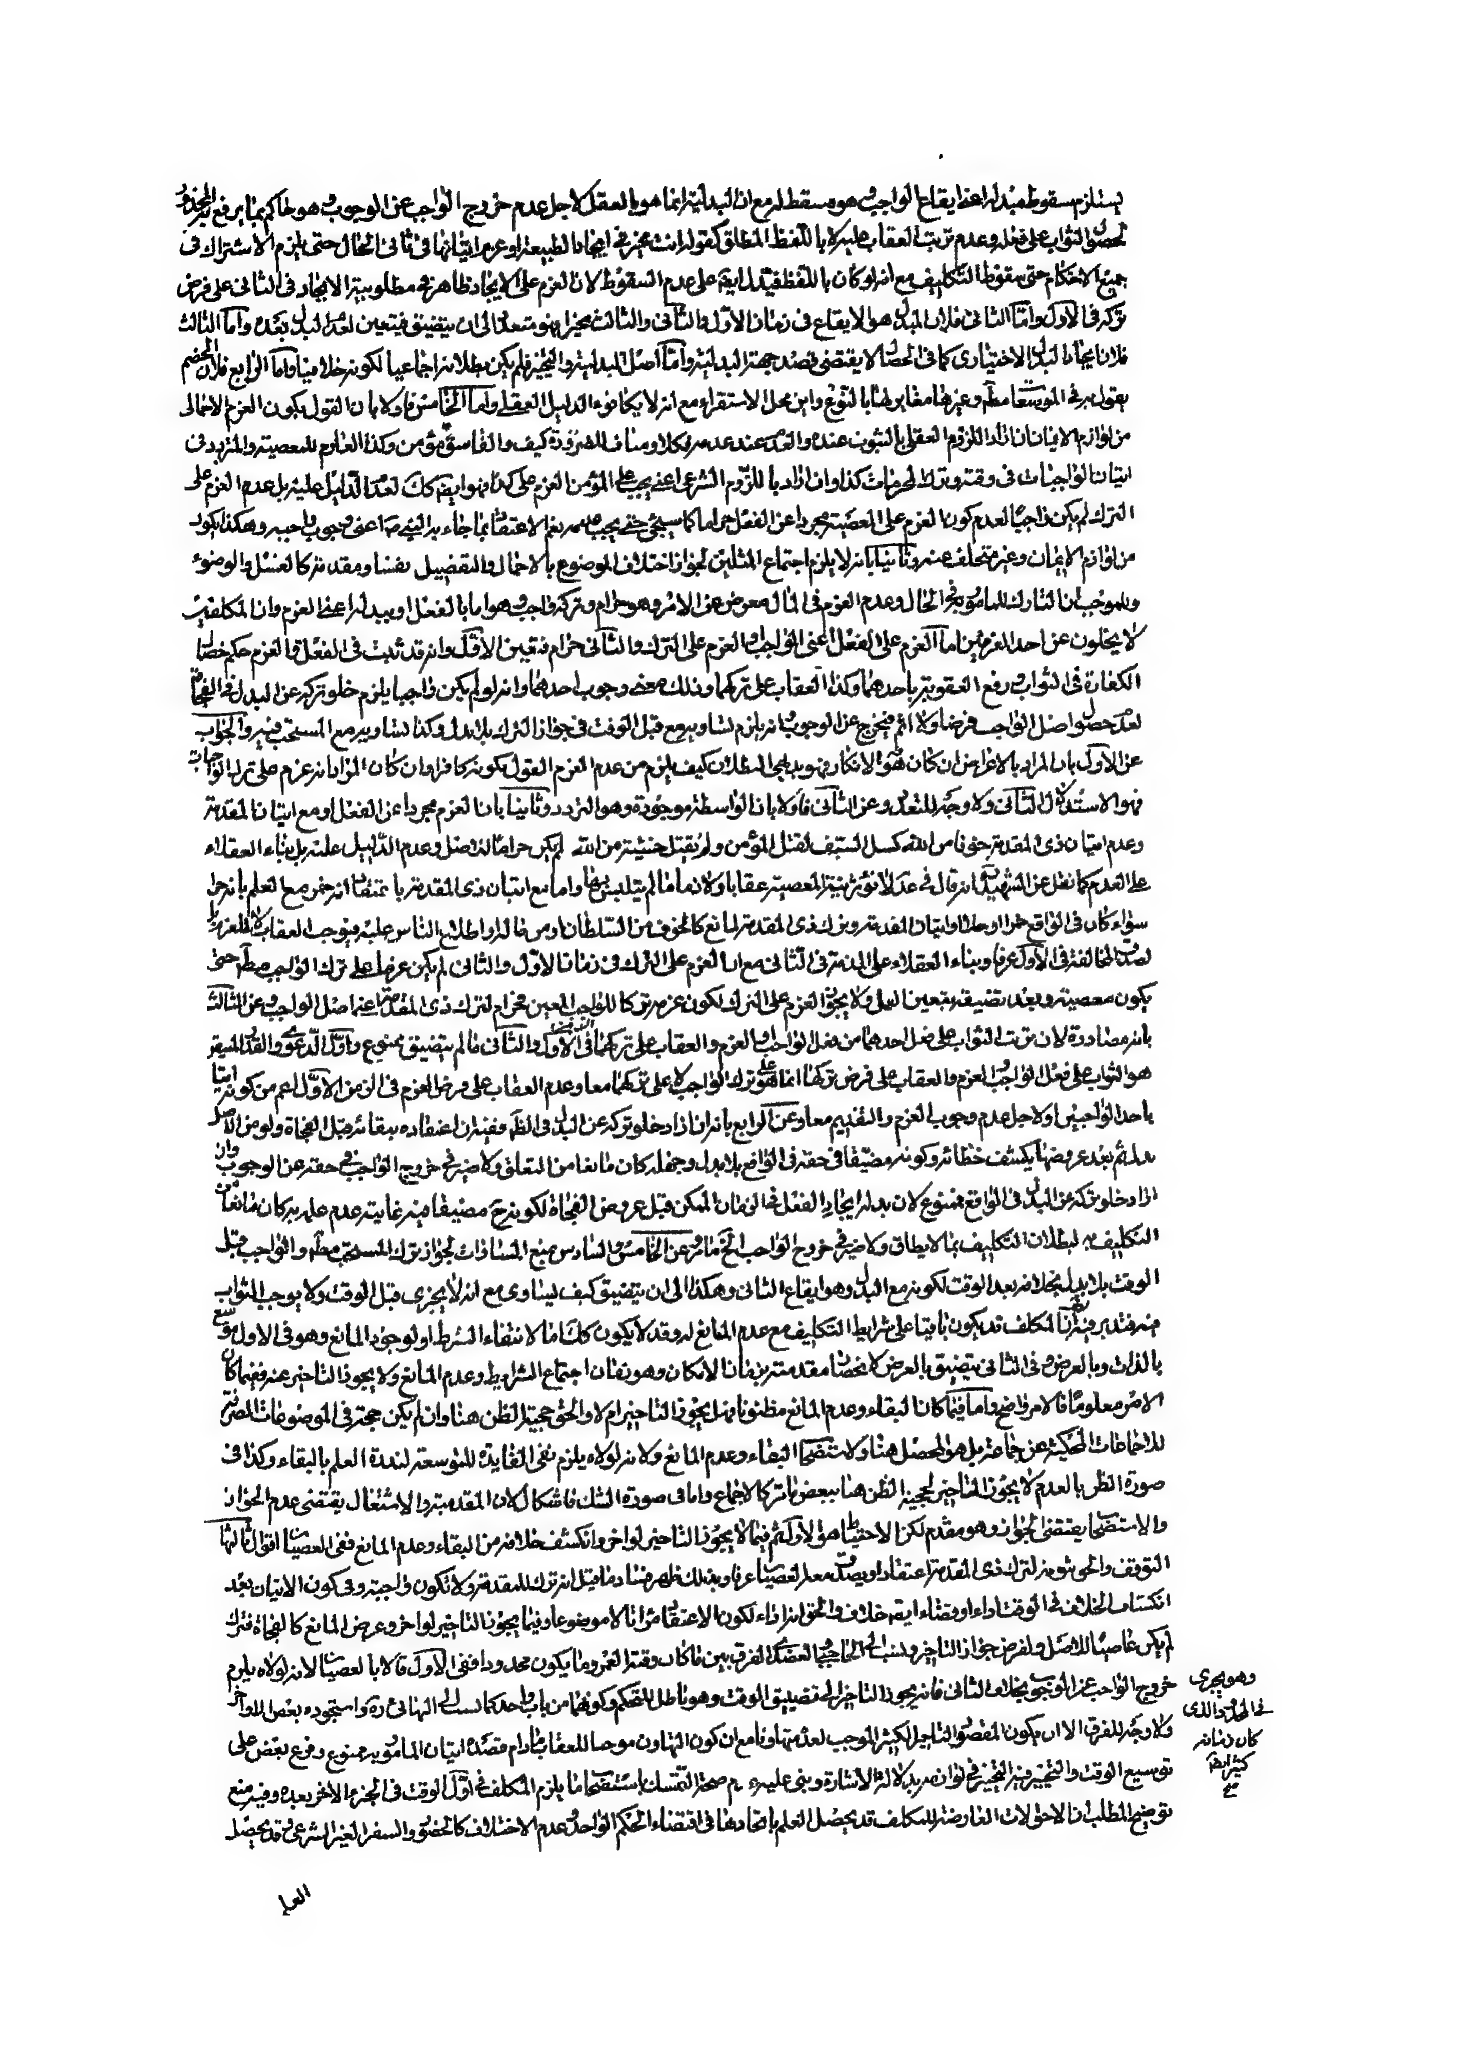 يستلزم سقوط مبدله اعنى ايقاع الواجب وهو مسقط له مع ان البدلية انما هو بالعقل لاجل عدم خروج الواجب عن الوجوب وهو حاكم بما يرفع به المحذور
لحصول الثواب على فعله وعدم ترتب العقاب عليه لا باللفظ المطلق كقوله انت مخير فى ايجاد الطبيعة او عزم اتيانها فى ثانى الحال حتى يلزم الاشتراك فى
جميع الاحكام حتى سقوط التكليف مع انه لو كان باللفظ فيدل ايضه على عدم السقوط لان العزم على الايجاد ظاهر فى مطلوبية الايجاد فى الثانى على فرض
تركه فى الاول واما الثانى فلان المبدل هو الايقاع فى زمان الاول والثانى والثالث مخيرا فهو متعدد الى ان يتضيق فيتعين لعدم البدل بعده واما الثالث
فلان ايجاد البدل الاختيارى كما فى الخصال لا يقتضى قصد جهة البدلية واما اصل البدلية والتخيير فلم يكن بطلانه اجماعيا لكونه خلافيا واما الرابع فلان الخصم
يقول به فى الموسعات مطه وغيرها مقابلها بالنوع واين محل الاستقراء مع انه لا يكافوء الدليل العقلى واما الخامس فاولا بان القول بكون العزم الاجمالى
من لوازم الايمان ان اراد اللزوم العقلى بالثبوت عنده والعدم عند عدمه فكلا ومناف للضرورة كيف والفاسق مؤمن وكذا العازم للمعصية والمتردد فى
اتيان الواجبات فى وقته وترك المحرمات كذا وان اراد باللزوم الشرعى اعنى يجب على المؤمن العزم على كذا فهو ايضه كك لعدم الدليل عليه بل عدم العزم على
الترك لم يكن واجبا لعدم كون العزم على المعصية مجردا عن الفعل حراما كما سيجئ حتى يجب عدمه نعم الاعتقاد بما جاء به النبى ص اعنى وجوب واجبه وهكذا يكون
من لوازم الايمان وغير متخلف عنه وثانيا بانه لا يلزم اجتماع المثلين لجواز اختلاف الموضوع بالاجمال والتفصيل نفسا ومقدمة كالغسل والوضوء
وللموجب ان التارك للمامور به فى الحال وعدم العزم فى المال معرض عن الامر وهو حرام وتركه واجب وهو اما بالفعل او ببدله اعنى العزم وان المكلفين
لا يخلون عن احد العزمين اما العزم على الفعل اعنى الواجب او العزم على الترك والثانى حرام فتعين الاول وانه قد ثبت فى الفعل والعزم حكم خصال
الكفارة فى الثواب ورفع العقوبة باحدهما وكذا العقاب على تركهما وذلك معنى وجوب احدهما وانه لو لم يكن واجبا يلزم خلو تركه عن البدل فى الفجاة
لعدم حصول اصل الواجب فرضا ولا اثم فيخرج عن الوجوب وانه يلزم تساويه مع قبل الوقت فى جواز الترك بلا بدل وكذا تساويه مع المستحب فيه والجواب
عن الاول بان المراد بالاعراض ان كان هو الانكار فهو بديهى البطلان كيف يلزم من عدم العزم القول بكونه كافرا وان كان المراد انه عزم على ترك الواجبات
فهو الاستدلال الثانى ولا وجه للتعدد وعن الثانى فاولا بان الواسطة موجودة وهو التردد وثانيا بان العزم مجردا عن الفعل او مع اتيان المقدمة
وعدم اتيان ذى المقدمة خوفا من الله كسل السيف لقتل المؤمن ولم يقتل خشية من الله لم يكن حراما للاصل وعدم الدليل عليه بل بناء العقلاء
على العدم كما نقل عن الشهيد ره انه قال فى عد لا تؤثر نية المعصية عقابا ولا ذما ما لم يتلبس بها واما مع اتيان ذى المقدمة باعتقاد انه خمر مع العلم بانه حرام
سواء كان فى الواقع خمرا او خلا او اتيان المقدمة وترك ذى المقدمة لمانع كالخوف من السلطان او من خاله او اطلاع الناس عليه فيوجب العقاب
لصدق المخالفة فى الاول عرفا وبناء العقلاء على المذمة فى الثانى مع ان العزم على الترك فى زمان الاول والثانى لم يكن عزما على ترك الواجب مطه حتى
يكون معصية وبعد تضيقه بتعين البدل ولا يجوز العزم على الترك لكون عزمه تركا للواجب المعين محرام لترك ذى المقدمة اعنى اصل الواجب وعن الثالث
بانه مصادرة لان ترتب الثواب على فعل احدهما من فعل الواجب والعزم والعقاب على تركهما فى الاول والثانى ما لم يتضيق ممنوع واول الدعوى والقدر المتيقن
هو الثواب على فعل الواجب والعزم والعقاب على فرض تركها انما هو على ترك الواجب لا على تركهما معا وعدم العقاب على فرض العزم فى الزمن الاول اعم من كونه اتيا
باحد الواجبين او لاجل عدم وجوب العزم والتقديم معا وعن الرابع بانه ان اراد خلو تركه عن البدل فى الظه ففيه ان اعتقاده ببقائه قبل الفجاة ولو من الاصل
بدل ثم بعد عروضها يكشف خطائه وكونه مضيقا فى حقه فى الواقع بلا بدل وجهله كان مانعا من التعلق ولا ضير فى خروج الواجب فى حقه عن الوجوب وان
اراد خلو تركه عن البدل فى الواقع ممنوع لان بدله ايجاد الفعل فى الزمان الممكن قبل عروض الفجاة لكونه ح مضيقا فيه غاية عدم علمه به كان مانعا من
التكليف به لبطلان التكليف بما لا يطاق ولا ضير فى خروج الواجب الخ مامر وعن الخامس والسادس بمنع المساوات لجواز ترك المستحب مطه والواجب قبل
الوقت بلا بدل بخلافه بعد الوقت لكونه مع البدل وهو ايقاع الثانى وهكذا الى ان يتضيق كيف يساوى مع انه لا يجزى قبل الوقت ولا يوجب الثواب
فيه فتدبر ثم ان المكلف قد يكون باقيا على شرايط التكليف مع عدم المانع له وقد لا يكون كك اما لانتفاء الشرط او لوجود المانع وهو فى الاول موسع
بالذات وبالعرض وفى الثانى يتضيق بالعرض لانحصار مقدمته بزمان الامكان وهو زمان اجتماع الشرايط وعدم المانع ولا يجوز التاخير عنه ففيما كان
الامر معلوما فالامر واضح واما فيما كان البقاء وعدم المانع مظنونا فهل يجوز التاخير ام لا والحق حجية الظن هنا وان لم يكن حجة فى الموضوعات الصرفة
للاجماعات المحكية عن جماعة بل هو المحصل هنا ولاستصحاب البقاء وعدم المانع ولانه لولاه يلزم نفى الفايدة للتوسعة لندرة العلم بالبقاء وكذا فى
صورة الظن بالعدم لا يجوز التاخير لحجية الظن هنا ببعض مامر كالاجماع واما فى صورة الشك فاشكال لان المقدمية والاشتغال يقتضى عدم الجواز
والاستصحاب يقتضى الجواز وهو مقدم لكن الاحتياط هو الاولى ثم فيما لا يجوز التاخير لو اخر وانكشف خلافه من البقاء وعدم المانع ففى العصيان اقوال ثالثها
التوقف والحق ثبوته لترك ذى المقدمة اعتقادا ويصدق معه العصيان عرفا وبذلك ظهر فساد ما قيل انه ترك للمقدمة ولا تكون واجبة وفى كون الاتيان بعد
انكشاف الخلاف فى الوقت اداء او قضاء ايضه خلاف والحق انه اداء لكون الاعتقاد مراتا لا موضوعا وفيما يجوز التاخير لو اخر وعرض المانع كالفجاة فترك
لم يكن عاصيا للاصل ولفرض جواز التاخير ونسب الى الحاجبى والعضدى الفرق بين ما كان وقته العمر وما يكون محدودا ففى الاول قالا بالعصيان لانه لولاه يلزم
خروج الواجب عن الوجوب بخلاف الثانى فانه يجوز التاخير الى تضييق الوقت وهو باطل للتحكم وكونهما من باب واحد كما نسب الى البهائى ره واستجوده بعض الاواخر
ولا وجه للفرق الا ان يكون المقصود التاجيل الكثير الموجب لعده متهاونا مع ان كون التهاون موجبا للعقاب مادام قصده اتيان المامور به ممنوع وفرع بعض على
توسيع الوقت والتخيير فيه التخيير فى لوازمه بدلالة الاشارة وبنى عليه عدم صحة التمسك باستصحاب ما يلزم المكلف فى اول الوقت فى الجزء الاخر بعده وفيه منع
توضيح المطلب ان الاحوالات العارضة للمكلف قد يحصل العلم باتحادها فى اقتضاء الحكم الواحد وعدم الاختلاف كالحضر والسفر الغير الشرعى وقد يحصل
وهو يجرى
فى الحد والذى
كان زمانه
كثيرا ايضا
منه
العلم